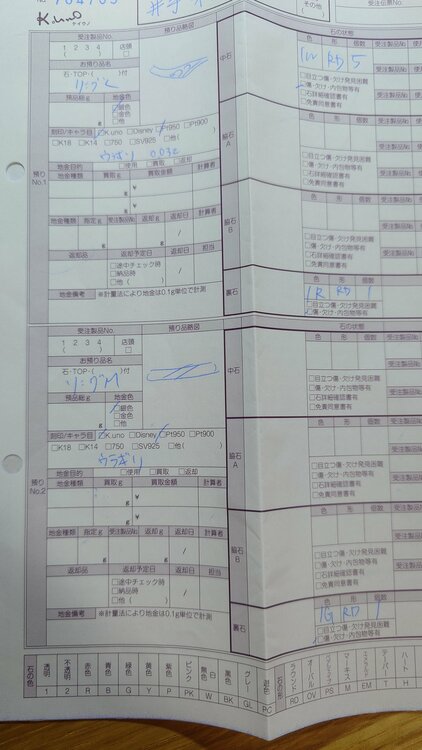 K.uno
ケイウノ
その他
受注製品No. 預り品略図 石の状態
1 2 3 4 店頭 中石 色 形 個数 受注製品No
( ) □ 1W RD 5
お預り品名
石・TOP・( )付
リング L □目立つ傷・欠け発見困難
預品総g 地金色 □傷・欠け・内包物等有
□銀色 □石詳細確認書有
□金色 □免責同意書有
g □他
刻印/キャラ目 □K.uno □Disney □Pt950 □Pt900 脇石A 色 形 個数 受注製品No
□K18 □K14 □750 □SV925 □他( )
預りNo.1
地金目的 □使用 □買取 □返却 □目立つ傷・欠け発見困難
地金種類 買取g 買取金額 計算者 □傷・欠け・内包物等有
g ¥ □石詳細確認書有
g ¥ □免責同意書有
地金種類 指定g 受注製品No 返却g 返却日 計算者 脇石B 色 形 個数 受注製品No
g g /
返却品 返却予定日 返却日 担当 □目立つ傷・欠け発見困難
□途中チェック時 □傷・欠け・内包物等有
□納品時 / □石詳細確認書有
□他( ) □免責同意書有
地金備考 ※計量法により地金は0.1g単位で計測 裏石 色 形 個数
1R RD 1
□目立つ傷・欠け発見困難
□傷・欠け・内包物等有
受注製品No. 預り品略図 石の状態
1 2 3 4 店頭 中石 色 形 個数 受注製品No
( ) □
お預り品名
石・TOP・( )付
リング M □目立つ傷・欠け発見困難
預品総g 地金色 □傷・欠け・内包物等有
□銀色 □石詳細確認書有
□金色 □免責同意書有
g □他
刻印/キャラ目 □K.uno □Disney □Pt950 □Pt900 脇石A 色 形 個数 受注製品No
□K18 □K14 □750 □SV925 □他( )
ウラギリ
預りNo.2
地金目的 □使用 □買取 □返却 □目立つ傷・欠け発見困難
地金種類 買取g 買取金額 計算者 □傷・欠け・内包物等有
g ¥ □石詳細確認書有
g ¥ □免責同意書有
地金種類 指定g 受注製品No 返却g 返却日 計算者 脇石B 色 形 個数 受注製品No
g g /
返却品 返却予定日 返却日 担当 □目立つ傷・欠け発見困難
□途中チェック時 □傷・欠け・内包物等有
□納品時 / □石詳細確認書有
□他( ) □免責同意書有
地金備考 ※計量法により地金は0.1g単位で計測 裏石 色 形 個数
1G RD 1
□目立つ傷・欠け発見困難
□傷・欠け・内包物等有
石の色 透明 不透明 赤色 青色 緑色 黄色 紫色 ピンク 無色 白 黒色 グレー 遊色 石の形 ラウンド オーバル マーキス テーパー ハート
1 2 R B G Y P PK W BK GL PC RD OV PS M EM T H